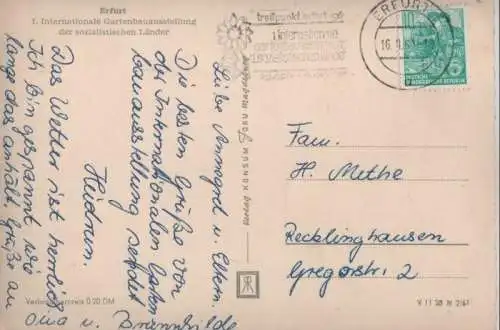 Erfurt
1. Internationale Gartenbauausstellung
der sozialistischen Länder
treffpunkt erfurt
1. internationale
ERFURT
16.9.61
10
DEUTSCHE
DEMOKRATISCHE REPUBLIK
Liebe Annegret u. Eltern.
Die besten Grüße von
der Internationalen Garten
bauausstellung sendet
Heidrun.
Das Wetter ist herrlich
Ich bin gespannt wie
lange das anhält. Grüße an
Oma u. Brunnhilde
Fam.
H. Methe
Recklinghausen
Gregorstr. 2
Verbraucherpreis 0,20 DM
V 11 28 N 2/61